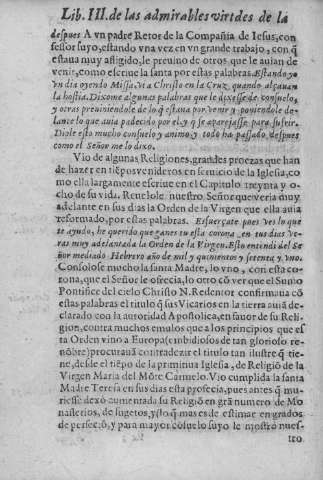 Lib. III. de las admirables virtdes de la
despues A vn padre Retor de la Compañia de Iesus, con
fessor suyo, estando vna vez en vn grande trabajo, con q̃
estaua muy afligido, le preuino de otros que le auian de
venir, como escriue la santa por estas palabras. Estando yo
vn dia oyendo Missa, vi a Christo en la Cruz, quando alçauan
la hostia. Dixome algunas palabras que le dixesse de consuelo,
y otras preuiniendole de lo que estaua por venir y poniendole de-
lante lo que auia padecido por el, y q̃ se aparejasse para sufrir.
Diole esto mucho consuelo y animo y todo ha passado despues
como el Señor me lo dixo.
Vio de algunas Religiones, grandes proezas que han
de hazer en tiẽpos venideros en seruicio de la Iglesia, co
mo ella largamente escriue en el Capitulo treynta y o-
cho de su vida. Reuelole nuestro Señor que veria muy
adelante en sus dias la Orden de la Virgen que ella auia
reformado, por estas palabras. Esfuerçate pues ves lo que
te ayudo, he querido que ganes tu esta corona, en tus dias ve-
ras muy adelantada la Orden de la Virgen. Esto entendi del Se
ñor mediado Hebrero año de mil y quinientos y setenta y vno.
Consolose mucho la santa Madre, lo vno, con esta co-
rona, que el Señor le ofrecia, lo otro cõ ver que el Sumo
Pontifice del cielo Christo N. Redentor confirmaua cõ
estas palabras el titulo q̃ sus Vicarios en la tierra auiã de-
clarado con la autoridad Apostolica, en fauor de su Reli-
gion, contra muchos emulos que a los principios que es
ta Orden vino a Europa (embidiosos de tan glorioso re-
nõbre) procurauã contradezir el titulo tan ilustre q̃ tie-
ne, desde el tiẽpo de la primitiua Iglesia, de Religiõ de la
Virgen Maria del Mõte Carmelo. Vio cumplida la santa
Madre Teresa en sus dias esta profecia, pues antes q̃ mu-
riesse dexò aumentada su Religiõ en grã numero de Mo
nasterios, de sugetos, y (lo q̃ mas es de estimar en grados
de perfeciõ, y para mayor cõsuelo suyo le mostrò nues-
tro